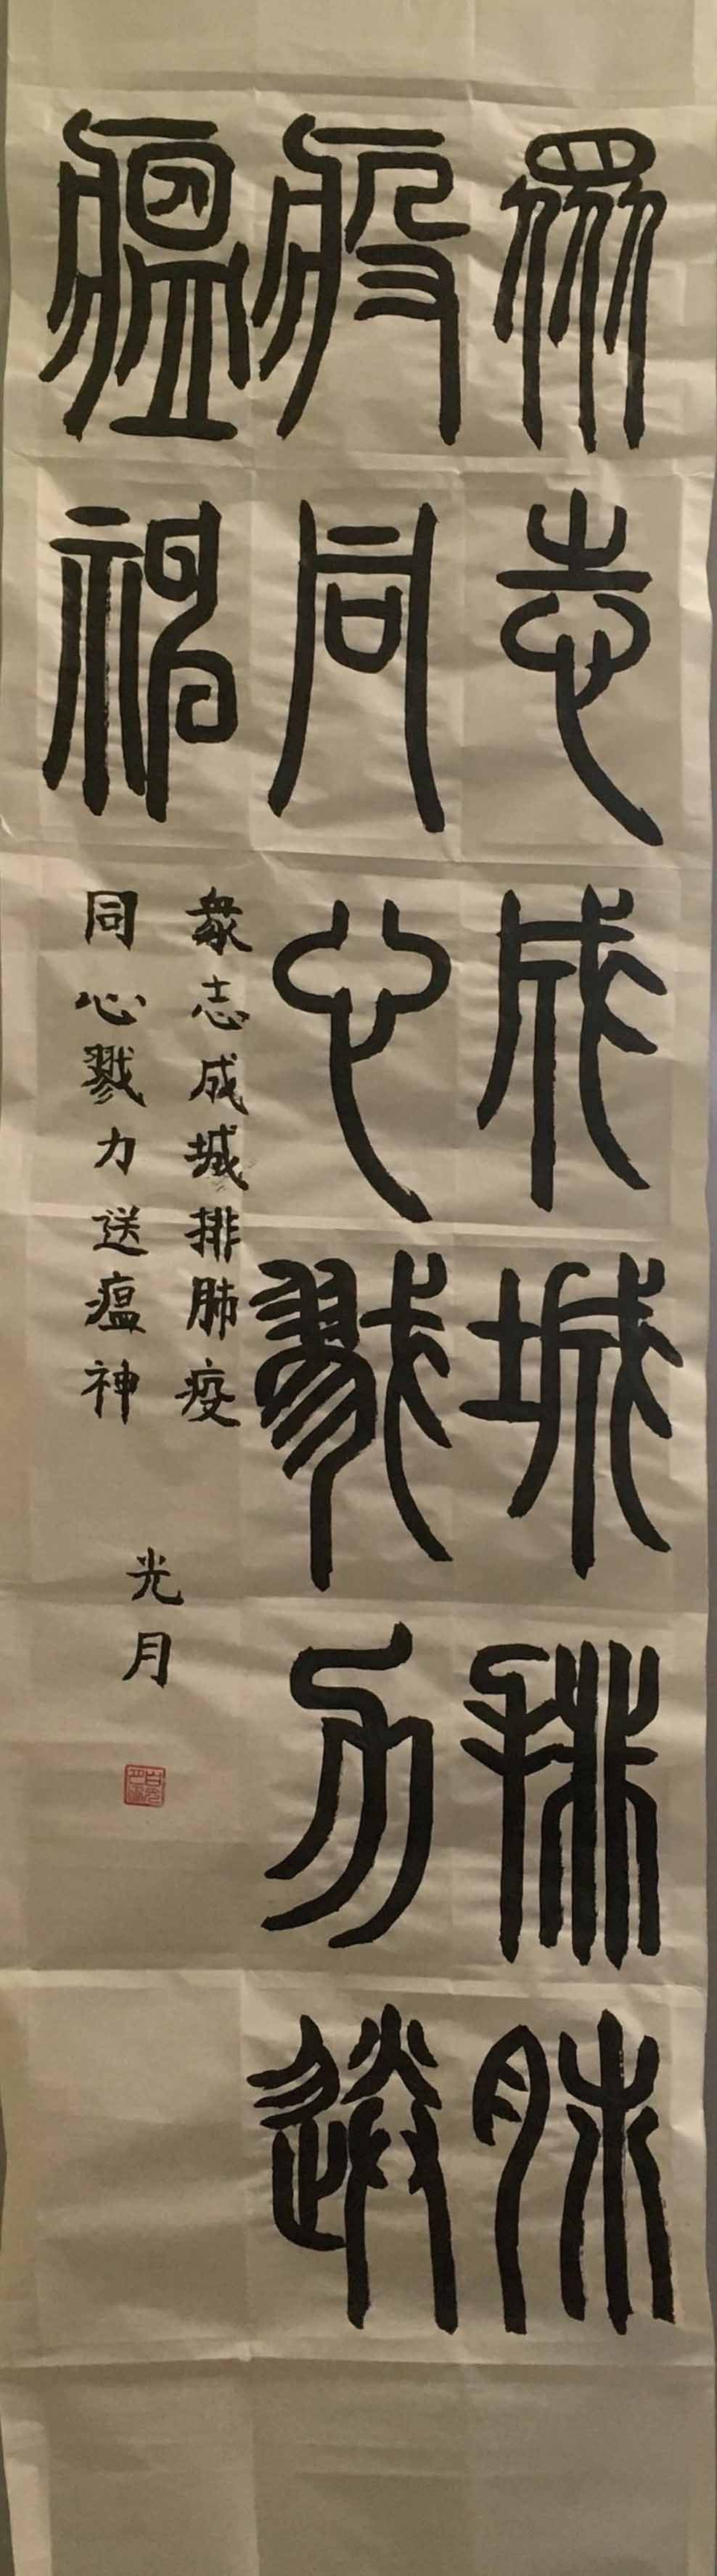 眾志成城排肺
疫同心戮力送
瘟神
眾志成城排肺疫
同心戮力送瘟神
光月